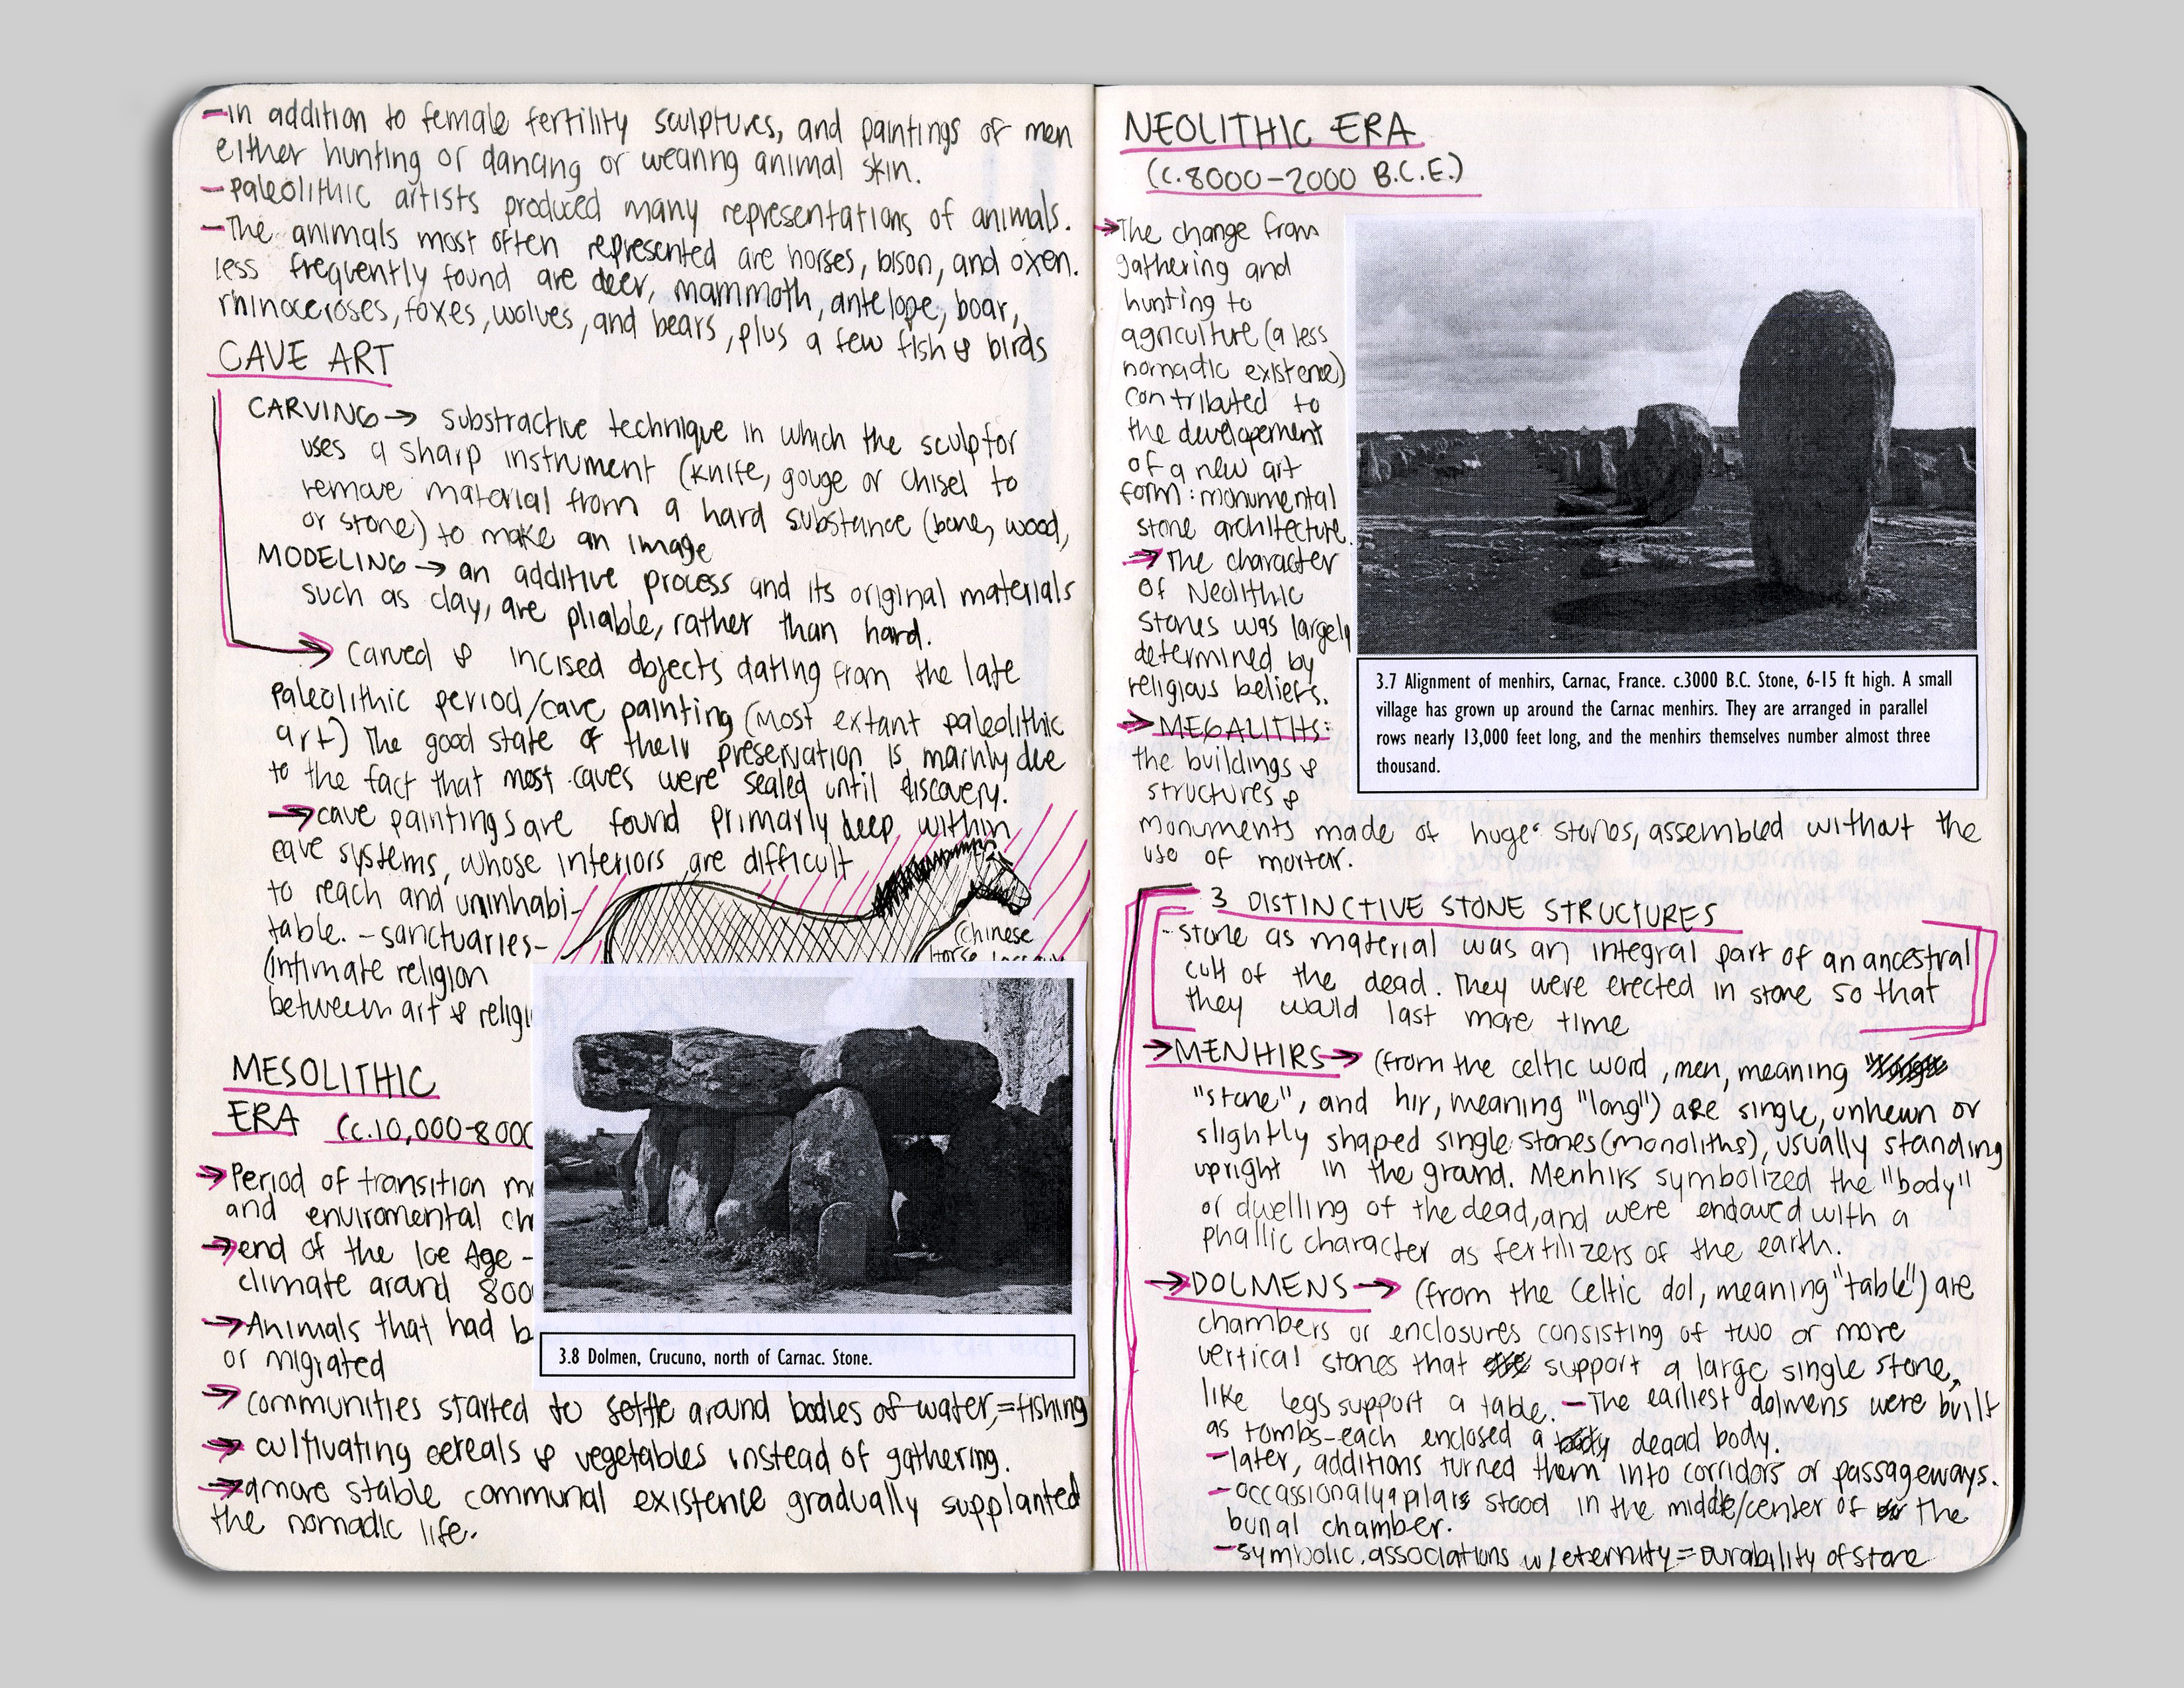 -In addition to female fertility sculptures, and paintings of men
either hunting or dancing or wearing animal skin.
-Paleolithic artists produced many representations of animals.
-The animals most often represented are horses, bison, and oxen.
less frequently found are deer, mammoth, antelope, boar,
rhinoceroses, foxes, wolves, and bears, plus a few fish & birds
CAVE ART
CARVING→ substractive technique in which the sculptor
uses a sharp instrument (knife, gouge or chisel to
remove material from a hard substance (bone, wood,
or stone) to make an image
MODELING→ an additive process and its original materials
such as clay, are pliable, rather than hard.
→ Carved & incised objects dating from the late
paleolithic period/cave painting (most extant paleolithic
art) The good state of their preservation is mainly due
to the fact that most caves were sealed until discovery.
→cave paintings are found primarly deep within
cave systems, whose interiors are difficult
to reach and uninhabi-
table. -sanctuaries-
(intimate religion
between art & religi
(Chinese
Horse
MESOLITHIC
ERA (c.10,000-8000
→Period of transition m
and enviromental ch
→end of the Ice Age -
climate around 800
→Animals that had b
or migrated
→communities started to settle around bodies of water,=fishing
→ cultivating cereals & vegetables instead of gathering.
→a more stable communal existence gradually supplanted
the nomadic life.
3.8 Dolmen, Crucuno, north of Carnac. Stone.
NEOLITHIC ERA
(c.8000-2000 B.C.E.)
→The change from
gathering and
hunting to
agriculture (a less
nomadic existence)
contributed to
the developement
of a new art
form: monumental
stone architecture.
→The character
of Neolithic
stones was largely
determined by
religious beliefs.
→MEGALITHS:
the buildings &
structures &
monuments made of huge stones, assembled without the
use of mortar.
3.7 Alignment of menhirs, Carnac, France. c.3000 B.C. Stone, 6-15 ft high. A small
village has grown up around the Carnac menhirs. They are arranged in parallel
rows nearly 13,000 feet long, and the menhirs themselves number almost three
thousand.
3 DISTINCTIVE STONE STRUCTURES
-stone as material was an integral part of an ancestral
cult of the dead. They were erected in stone so that
they would last more time
→MENHIRS→ (from the celtic word, men, meaning
"stone", and hir, meaning "long") are single, unhewn or
slightly shaped single stones (monoliths), usually standing
upright in the ground. Menhirs symbolized the "body"
or dwelling of the dead, and were endowed with a
phallic character as fertilizers of the earth.
→DOLMENS→ (from the Celtic dol, meaning "table") are
chambers or enclosures consisting of two or more
vertical stones that support a large single stone,
like legs support a table. -The earliest dolmens were built
as tombs-each enclosed a degad body.
-later, additions turned them into corridors or passageways.
-occassionaly a pilars stood in the middle/center of the
burial chamber.
-symbolic associations w/eternity=Durability of stone